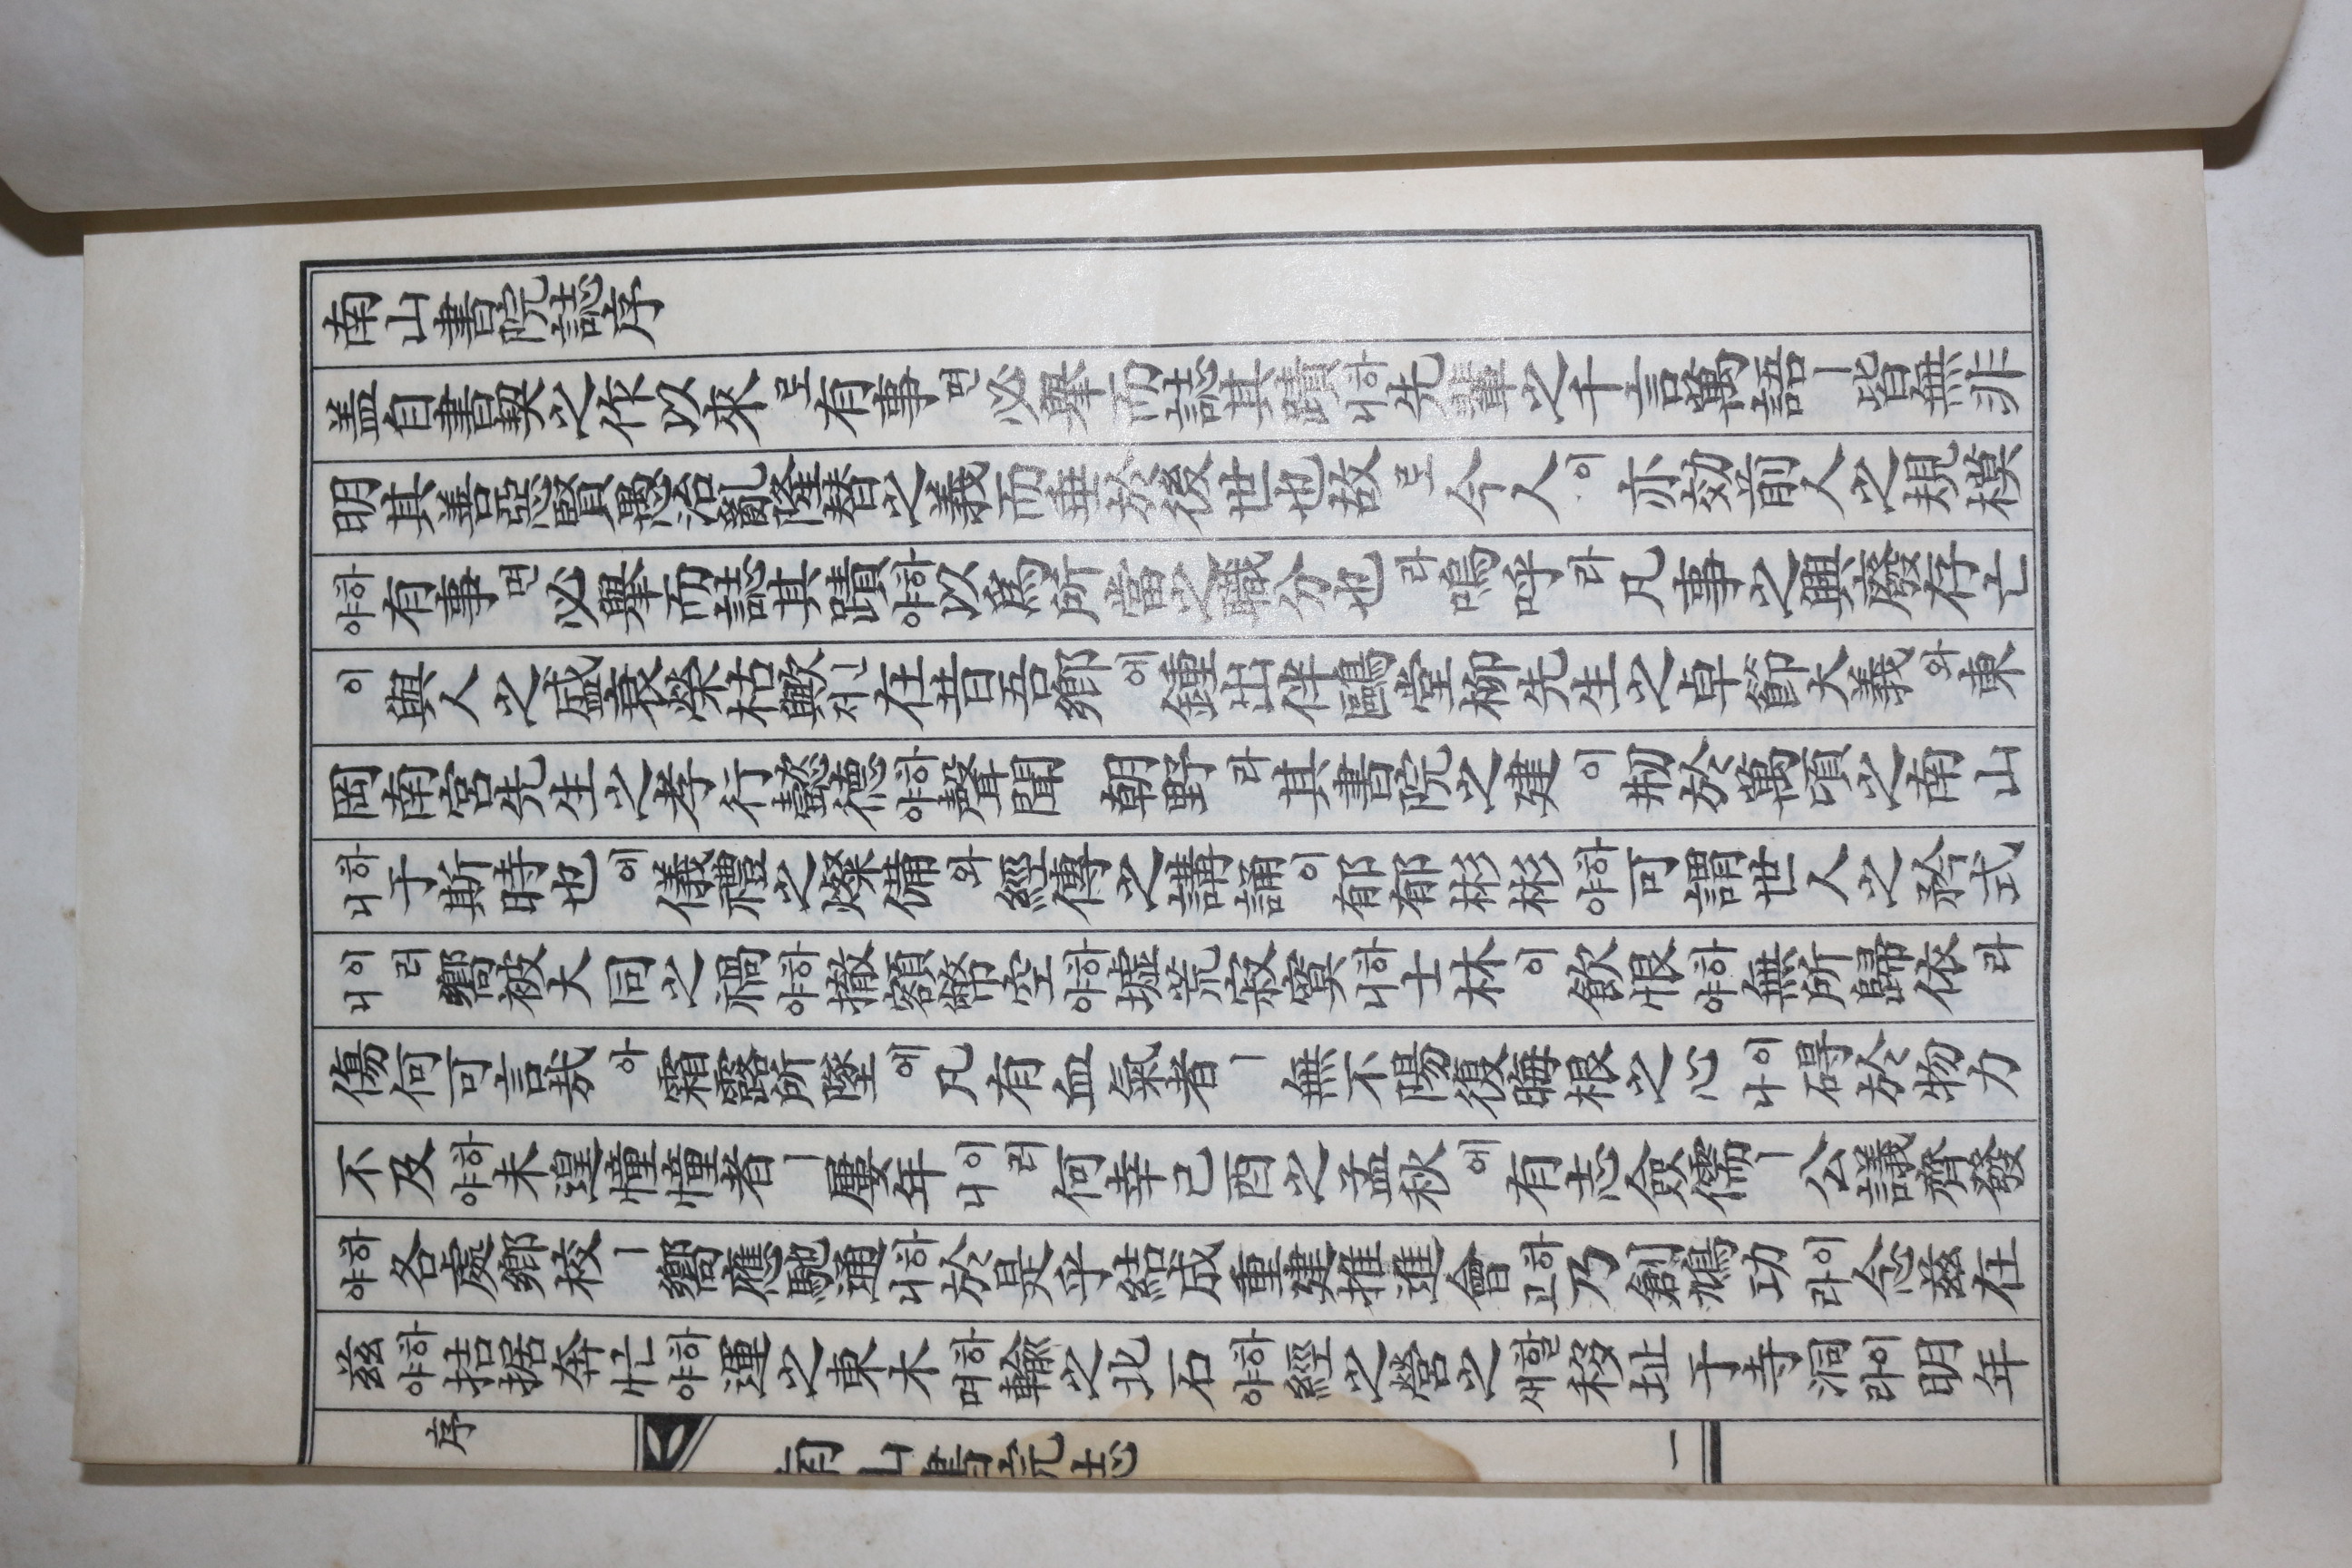 南山書院誌序
盖自書契之作以來로有事면必擧而誌其蹟하니先輩之千言萬語ㅣ皆無非
明其善惡賢愚治亂隆替之義而垂於後世也故로今人이亦効前人之規模
하야有事면必擧而誌其蹟하야以爲所當之職分也라嗚呼라凡事之興廢存亡
이與人之盛衰榮枯歟신저在昔吾鄕에鍾出伴鷗堂柳先生之卓節大義와東
岡南宮先生之孝行懿德하야聲聞 朝野라其書院之建이刱於萬頃之南山
하니于斯時也에儀禮之燦備와經傳之講誦이郁郁彬彬하야可謂世人之矜式
이니러嚮被大同之禍하야撤額幣空하야墟荒寂寞하니士林이飮恨하야無所歸依라
傷何可言哉아霜露所墜에凡有血氣者ㅣ無不陽復晦根之心이나碍於物力
不及하야未遑憧憧者ㅣ屢年이니러何幸己酉之孟秋에有志僉儒ㅣ公議齊發
하야各處鄕校ㅣ嚮應馳通하니於是乎結成重建推進會하고乃創鳩功이라念玆在
玆하야拮据奔忙하야運之東木하며輸之北石하야經之營之할새移址于寺洞이라明年
序
南山書院誌
一